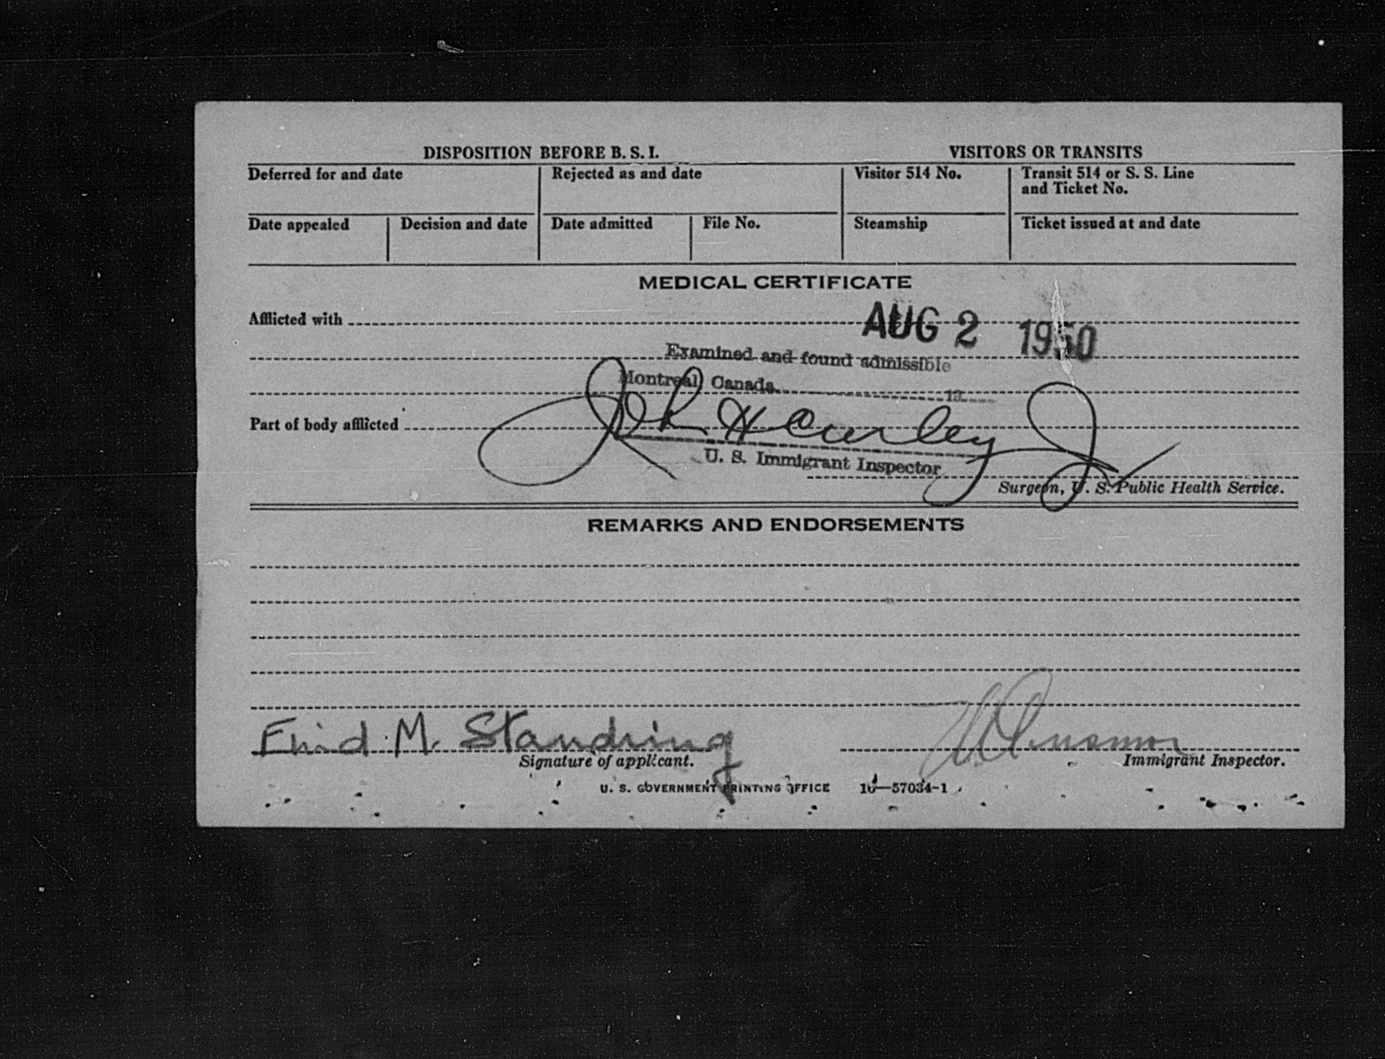 DISPOSITION BEFORE B. S. I. VISITORS OR TRANSITS
Deferred for and date Rejected as and date Visitor 514 No. Transit 514 or S. S. Line
and Ticket No.
Date appealed Decision and date Date admitted File No. Steamship Ticket issued at and date
MEDICAL CERTIFICATE
Afflicted with
AUG 2 1950
Examined and found admissible
Montreal, Canada 19
Part of body afflicted
John H Curley Jr
U. S. Immigrant Inspector
Surgeon, U. S. Public Health Service.
REMARKS AND ENDORSEMENTS
Enid M. Standring
Signature of applicant. Immigrant Inspector.
U. S. GOVERNMENT PRINTING OFFICE 16—57034-1